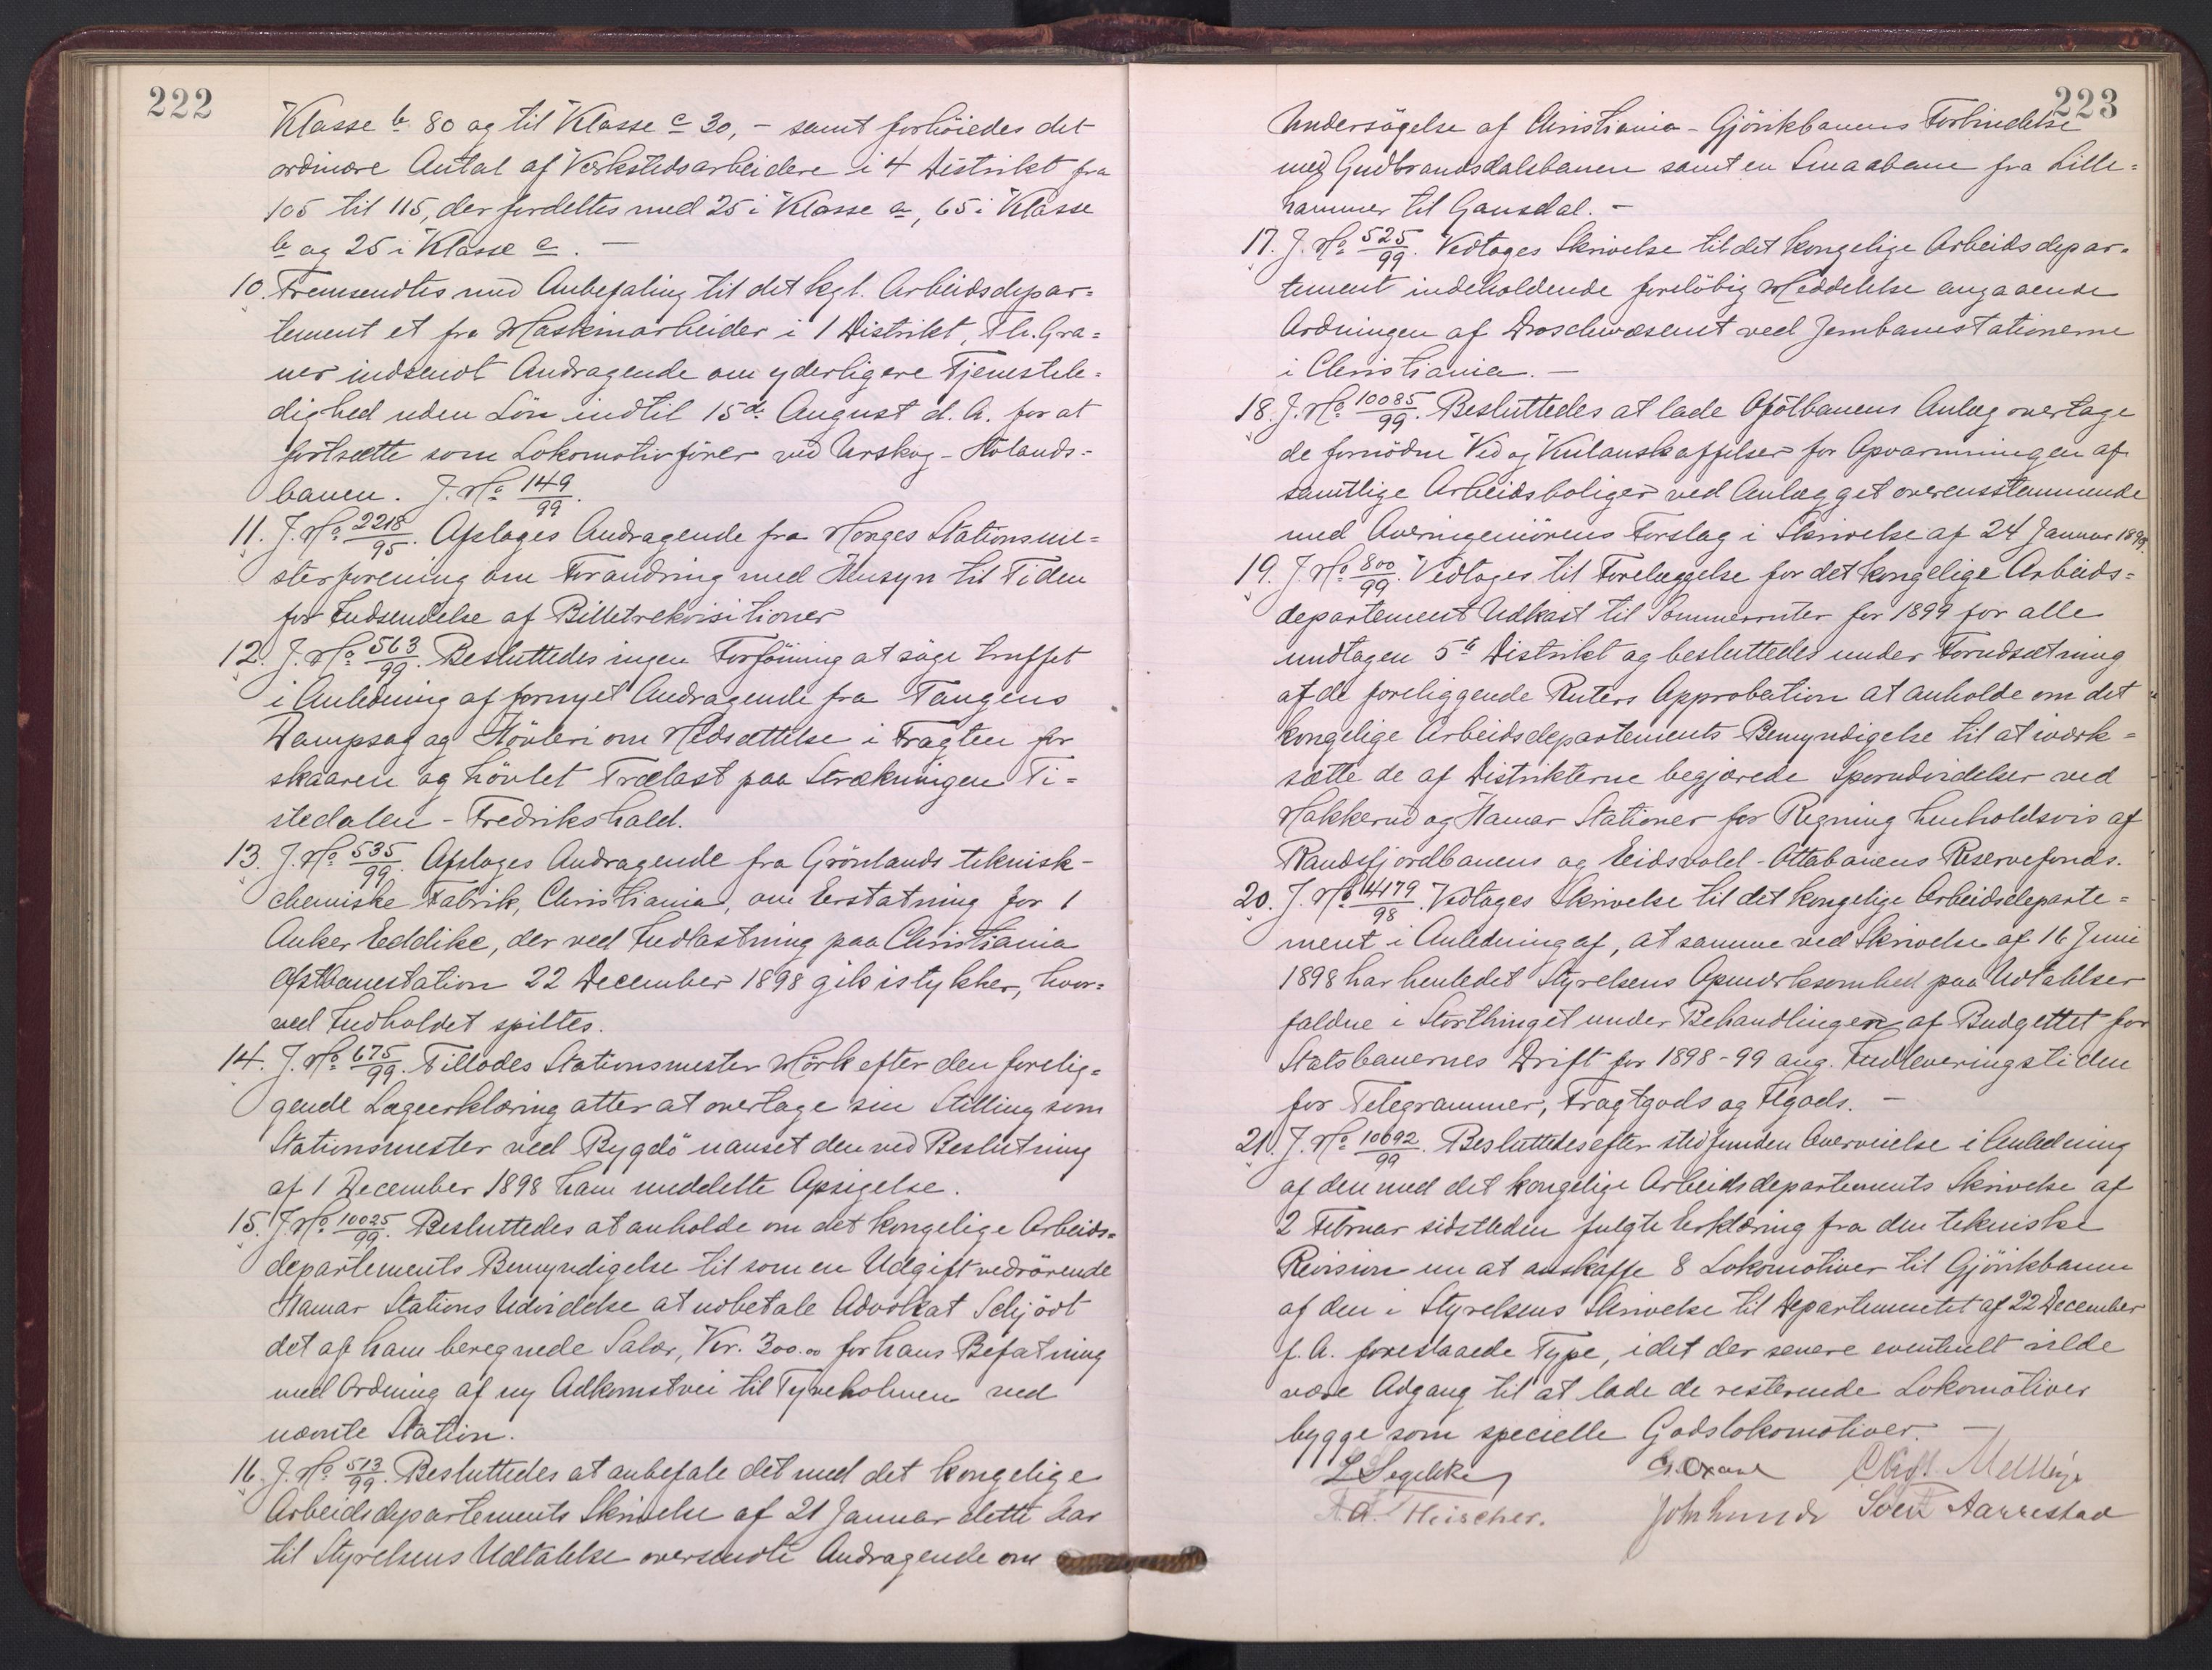 222
Klasse b 80 og til Klasse c 30, - samt forhöiedes det
ordinære Antal af Værkstedsarbeidere i 4 Distrikt fra
105 til 115, der fordeltes med 25 i Klasse a, 65 i Klasse
b og 25 i Klasse c. —
10. Fremsendtes med Anbefaling til det kgl. Arbeidsdepar=
tement et fra Maskinarbeider i 1 Distrikt, Th. Gra=
ner indsendt Andragende om yderligere Tjenestele=
dighed uden Lön indtil 15de August d. A. for at
fortsætte som Lokomotivförer ved Urskog-Hölands=
banen. J. No 149/99.
11. J. No 2218/95. Afslages Andragende fra Norges Stationsme=
sterforening om Forandring med Hensyn til Tiden
for Indsendelse af Billetrekvisitioner
12. J. No 563/99. Besluttedes ingen Forföining at söge truffet
i Anledning af fornyet Andragende fra Tangens
Dampsag og Hövleri om Nedsættelse i Fragten for
skaaren og hövlet Trælast paa Strækningen Ti=
stedalen - Fredrikshald.
13. J. No 535/99. Afslages Andragende fra Grönlands teknisk-
chemiske Fabrik, Christiania, om Erstatning for 1
Anker Eddike, der ved Indlastning paa Christiania
Östbanestation 22 December 1898 gik istykker, hvor=
ved Indholdet spiltes.
14. J. No 675/99. Tillodes Stationsmester Mörk efter den forelig=
gende Lægeerklæring atter at overtage sin Stilling som
Stationsmester ved Bygdö uanset den ved Beslutning
af 1 December 1898 ham meddelte Opsigelse.
15. J. No 10025/99. Besluttedes at anholde om det kongelige Arbeids=
departements Bemyndigelse til som en Udgift vedrörende
Hamar Stations Udvidelse at udbetale Advokat Schjödt
det af ham beregnede Salær, Kr. 300.00 for hans Befatning
med Ordning af ny Adkomstvei til Tyveholmen ved
nævnte Station.
16. J. No 513/99. Besluttedes at anbefale det med det kongelige
Arbeidsdepartements Skrivelse af 21 Januar dette Aar
til Styrelsens Udtalelse oversendte Andragende om
223
Undersögelse af Christiania - Gjövikbanens Forbindelse
med Gudbrandsdalsbanen samt en Smaabane fra Lille=
hammer til Gausdal. -
17. J. No 525/99. Vedtoges Skrivelse til det kongelige Arbeidsdepar=
tement indeholdende foreløbig Meddelelse angaaende
Ordningen af Droschevæsenet ved Jernbanestationerne
i Christiania. —
18. J. No 10085/99. Besluttedes at lade Ofotbanens Anlæg overtage
de fornödne Ved og Kulanskaffelser for Opvarmningen af
samtlige Arbeidsboliger ved Anlægget overensstemmende
med Overingeniörens Forslag i Skrivelse af 24 Januar 1899.
19. J. No 800/99. Vedtoges til Forelæggelse for det kongelige Arbeids=
departement Udkast til Sommerruter for 1899 for alle
undtagen 5te Distrikt og besluttedes under Forudsætning
af de foreliggende Ruters Approbation at anholde om det
kongelige Arbeidsdepartements Bemyndigelse til at iværk=
sætte de af Distrikterne begjærede Sporudvidelser ved
Nakkerud og Hamar Stationer for Regning henholdsvis af
Randsfjordbanens og Eidsvold-Ottabanens Reservefonds.
20. J. No 4179/98. Vedtoges Skrivelse til det kongelige Arbeidsdeparte=
ment i Anledning af, at samme ved Skrivelse af 16 Juni
1898 har henledet Styrelsens Opmærksomhed paa Udtalelser
faldne i Storthinget under Behandlingen af Budgettet for
Statsbanernes Drift for 1898-99 ang. Indleveringstiden
for Telegrammer, Fragtgods og Ilgods. —
21. J. No 10092/99. Besluttedes efter stedfunden Overveielse i Anledning
af den med det kongelige Arbeidsdepartements Skrivelse af
2 Februar sidstleden fulgte Erklæring fra den tekniske
Revision om at anskaffe 8 Lokomotiver til Gjövikbanen
af den i Styrelsens Skrivelse til Departementet af 22 December
f. A. foreslaaede Type, idet der senere eventuelt vilde
være Adgang til at lade de resterende Lokomotiver
bygge som specielle Godslokomotiver. —
L Segelcke
Chr. Mellbye
A. Fleischer. Joh Lund Sven Aarrestad